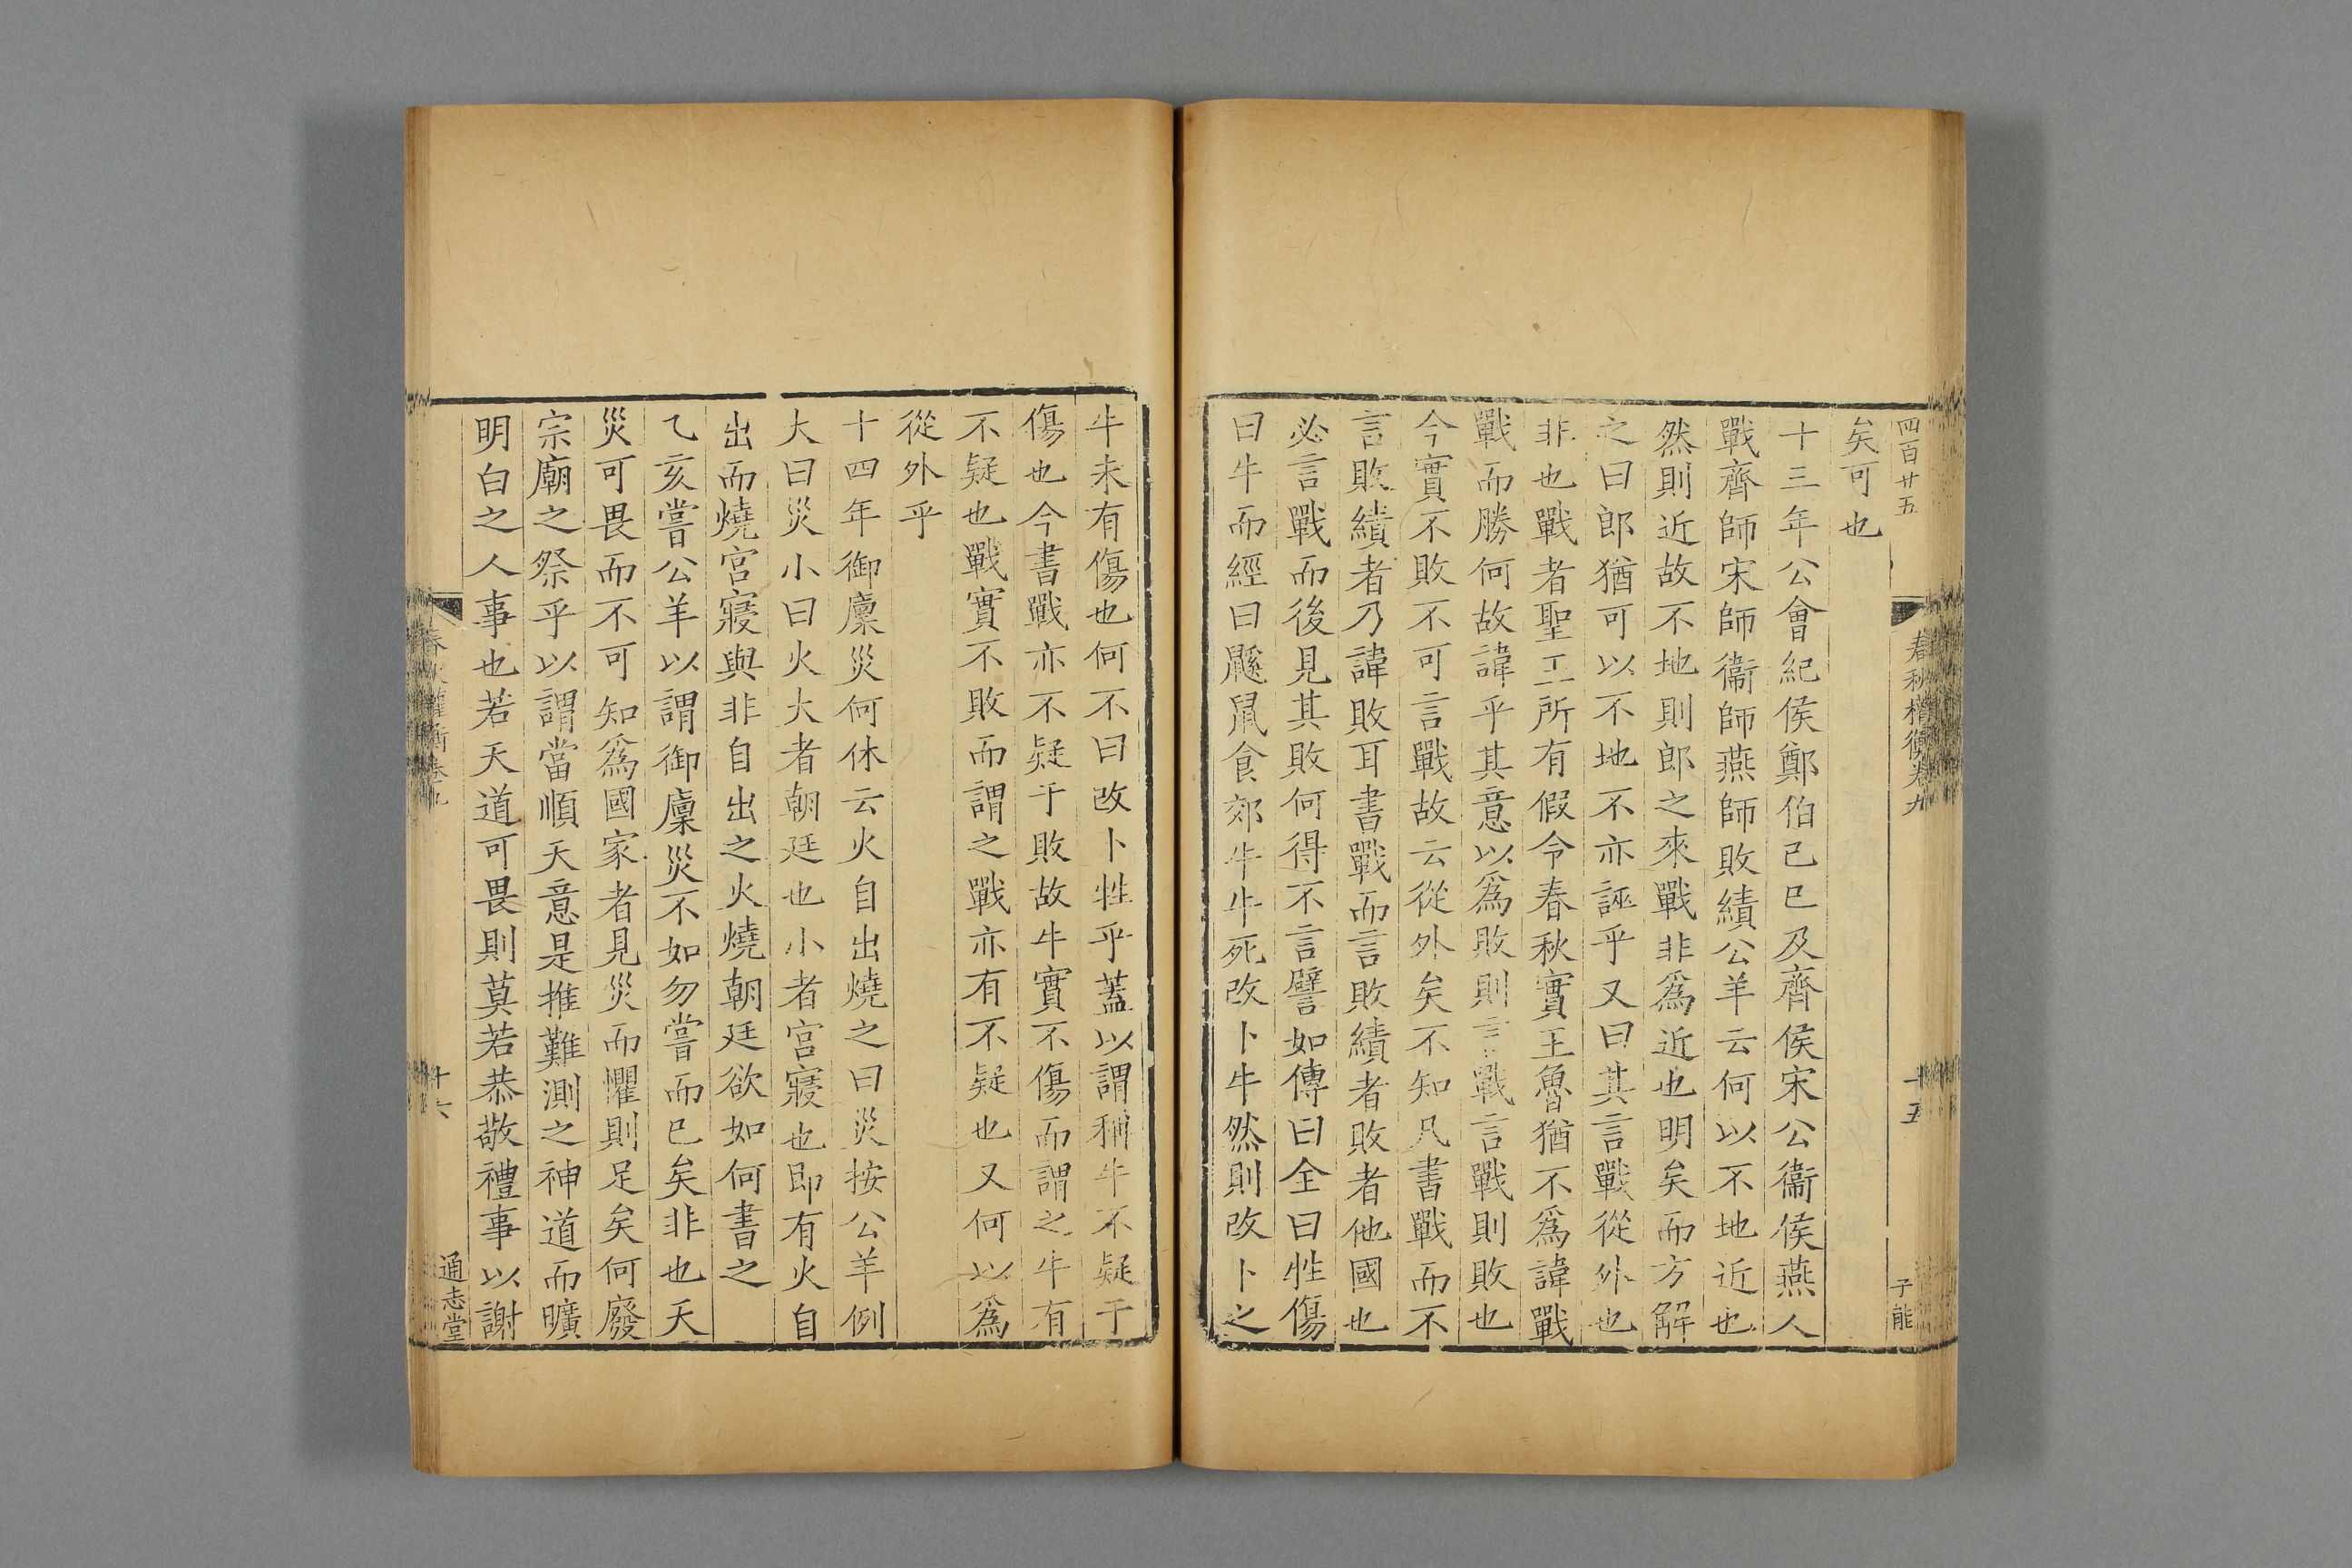 四百廿五
春秋權衡卷九
十五
子能
矣可也
十三年公會紀侯鄭伯己巳及齊侯宋公衞侯燕人
戰齊師宋師衞師燕師敗績公羊云何以不地近也
然則近故不地則郎之來戰非爲近也明矣而方解
之曰郎猶可以不地不亦誣乎又曰其言戰從外也
非也戰者聖王所有假令春秋實王魯猶不爲諱戰
戰而勝何故諱乎其意以爲敗則言戰言戰則敗也
今實不敗不可言戰故云從外矣不知凡書戰而不
言敗績者乃諱敗耳書戰而言敗績者敗者他國也
必言戰而後見其敗何得不言譬如傳曰全曰牲傷
曰牛而經曰鼷鼠食郊牛牛死改卜牛然則改卜之
牛未有傷也何不曰改卜牲乎蓋以謂稱牛不疑于
傷也今書戰亦不疑于敗故牛實不傷而謂之牛有
不疑也戰實不敗而謂之戰亦有不疑也又何以爲
從外乎
十四年御廩災何休云火自出燒之曰災按公羊例
大曰災小曰火大者朝廷也小者宮寢也即有火自
出而燒宮寢與非自出之火燒朝廷欲如何書之
乙亥嘗公羊以謂御廩災不如勿嘗而已矣非也天
災可畏而不可知爲國家者見災而懼則足矣何廢
宗廟之祭乎以謂當順天意是推難測之神道而曠
明白之人事也若天道可畏則莫若恭敬禮事以謝
春秋權衡卷九
十六
通志堂